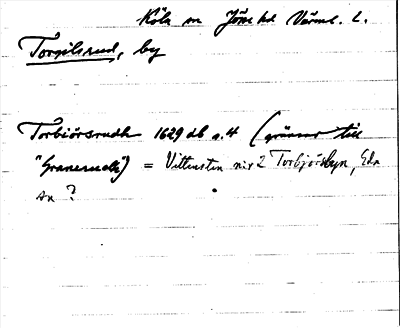 Köla sn Jösse hd Värml. l.
Torgilsrud, by
Torbiörsrudh 1629 db s. 4 (gränner till
"Granerudh") = Vittensten nr 2 Torbjörsbyn, Eda
sn ?